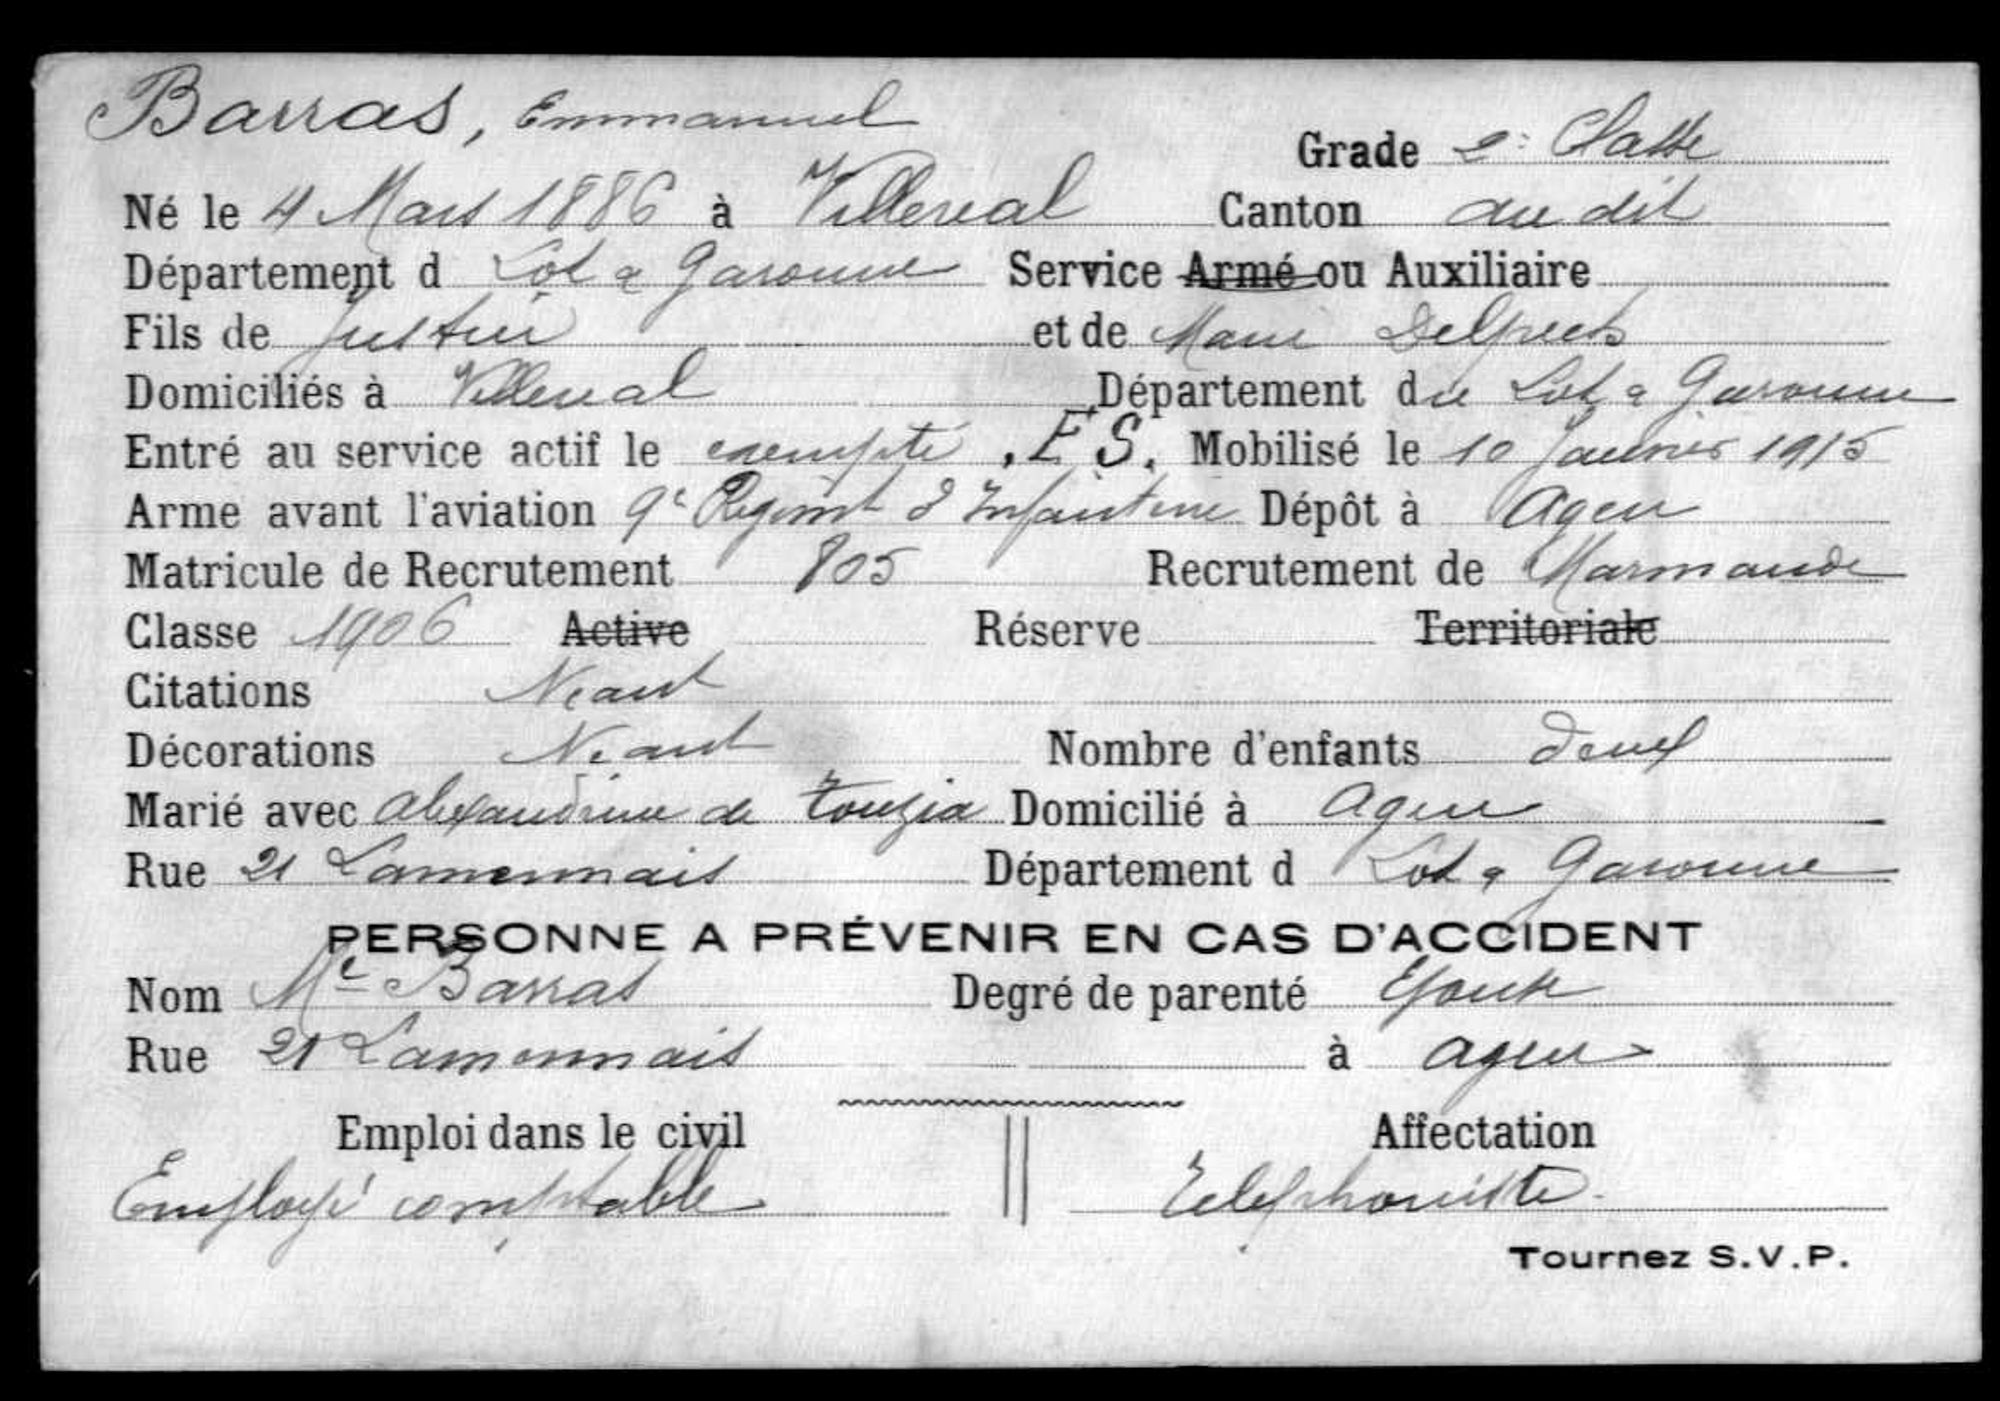 Barras, Emmanuel
Grade 2e Classe
Né le 4 Mars 1886 à Villereal Canton du dit
Département d Lot & Garonne Service Armé ou Auxiliaire
Fils de Justin et de Marie Delpech
Domiciliés à Villereal Département du Lot & Garonne
Entré au service actif le exempté .E S. Mobilisé le 10 Janvier 1915
Arme avant l'aviation 9e Regimt d'Infanterie Dépôt à Agen
Matricule de Recrutement 805 Recrutement de Marmande
Classe 1906 Active Réserve Territoriale
Citations Néant
Décorations Néant Nombre d'enfants deux
Marié avec Alexandrine de Touzia Domicilié à Agen
Rue 21 Lamennais Département d Lot & Garonne
PERSONNE A PRÉVENIR EN CAS D'ACCIDENT
Nom Me Barras Degré de parenté Epouse
Rue 21 Lamennais à Agen
Emploi dans le civil Affectation
Employé comptable Telephoniste
Tournez S.V.P.